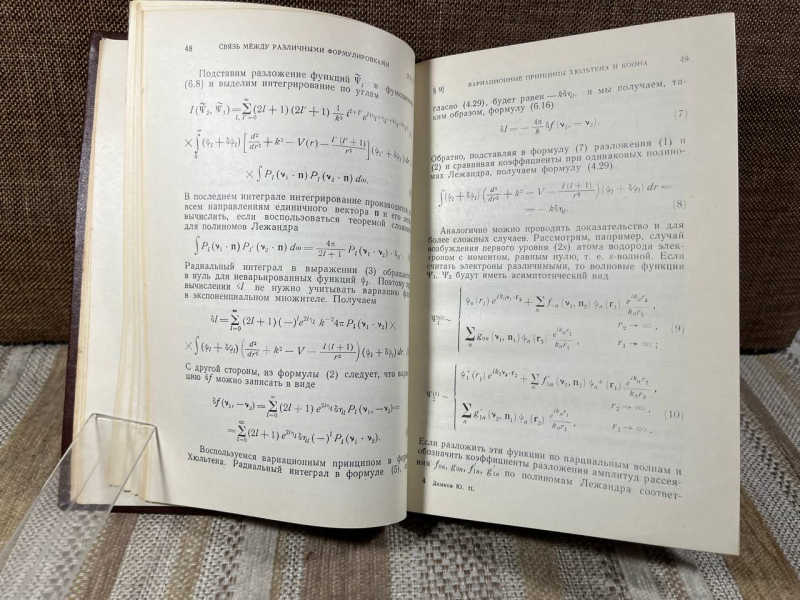 48 СВЯЗЬ МЕЖДУ РАЗЛИЧНЫМИ ФОРМУЛИРОВКАМИ
Подставим разложение функций Ψ̃₁ в функционал
(6.8) и выделим интегрирование по углам
I(Ψ̃₂, Ψ̃₁) = ∑ (2l + 1) (2l′ + 1) 1/k²
× ∫ (φ̂ₗ + δφ̂ₗ) [d²/dr² + k² − V(r) − l′(l′+1)/r²] (φ̂ₗ′ + δφ̂ₗ′) dr
× ∫ Pₗ(ν₁ · n) Pₗ′(ν₂ · n) dω.
В последнем интеграле интегрирование производится
всем направлениям единичного вектора n и его
вычислять, если воспользоваться теоремой сложения
для полиномов Лежандра
∫ Pₗ(ν₁ · n) Pₗ′(ν₂ · n) dω = 4π/(2l + 1) Pₗ(ν₁ · ν₂) ·
Радиальный интеграл в выражении (3)
в нуль для неварьированных функций φ̂ₗ. Поэтому
вычислении δI не нужно учитывать вариацию
в экспоненциальном множителе. Получаем
δI = ∑ (2l + 1) (−)ˡ e^{2iηₗ} k⁻² 4π Pₗ(ν₁ · ν₂) ×
× ∫ (φ̂ₗ + δφ̂ₗ) (d²/dr² + k² − V − l(l+1)/r²) (φ̂ₗ + δφ̂ₗ) dr
С другой стороны, из формулы (2) следует, что
цию δf можно записать в виде
δf(ν₁, −ν₂) = ∑ (2l + 1) e^{2iηₗ} δηₗ Pₗ(ν₁, −ν₂) =
= ∑ (2l + 1) e^{2iηₗ} δηₗ (−)ˡ Pₗ(ν₁ · ν₂).
Воспользуемся вариационным принципом в
Хюльтена. Радиальный интеграл в формуле (5),
§ 9] ВАРИАЦИОННЫЕ ПРИНЦИПЫ ХЮЛЬТЕНА И КОНА 49
гласно (4.29), будет равен −kδηₗ, и мы получаем, та-
ким образом, формулу (6.16)
δI = − 4π/k δf(ν₁, −ν₂). (7)
Обратно, подставляя в формулу (7) разложения (1) и
(2) и сравнивая коэффициенты при одинаковых полино-
мах Лежандра, получаем формулу (4.29)
∫ (φ̂ₗ + δφ̂ₗ) (d²/dr² + k² − V − l(l+1)/r²) (φ̂ₗ + δφ̂ₗ) dr =
= − kδηₗ. (8)
Аналогично можно проводить доказательство и для
более сложных случаев. Рассмотрим, например, случай
возбуждения первого уровня (2s) атома водорода элек-
троном с моментом, равным нулю, т. е. s-волной. Если
считать электроны различными, то волновые функции
Ψ₁, Ψ₂ будут иметь асимптотический вид
r₂ → ∞,
(9)
r₁ → ∞;
r₂ → ∞,
(10)
r₁ → ∞.
Если разложить эти функции по парциальным волнам и
обозначить коэффициенты разложения амплитуд рассея-
ния f₀ₙ, g₀ₙ, f₁ₙ, g₁ₙ по полиномам Лежандра соответ-
4 Демков Ю. Н.